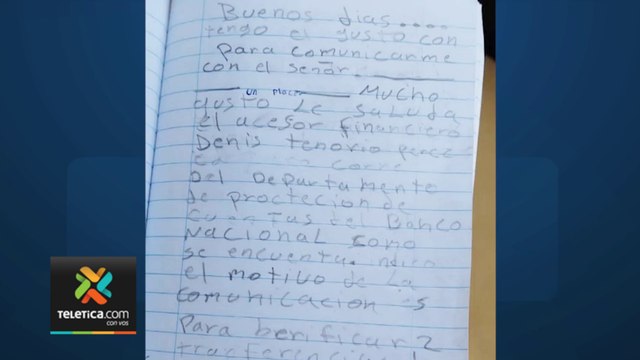 Buenos dias....
tengo el gusto con
Para comunicarme
con el señor.
un placer Mucho
gusto Le saluda
el acesor financiero
Denis tenorio perez
Del Departamente
de proctecion de
cuentas del Banco
Nacional como
se encuentra
el motivo de La
comunicacion es
Para berificar 2
transferencias
TELETICA.COM
con vos